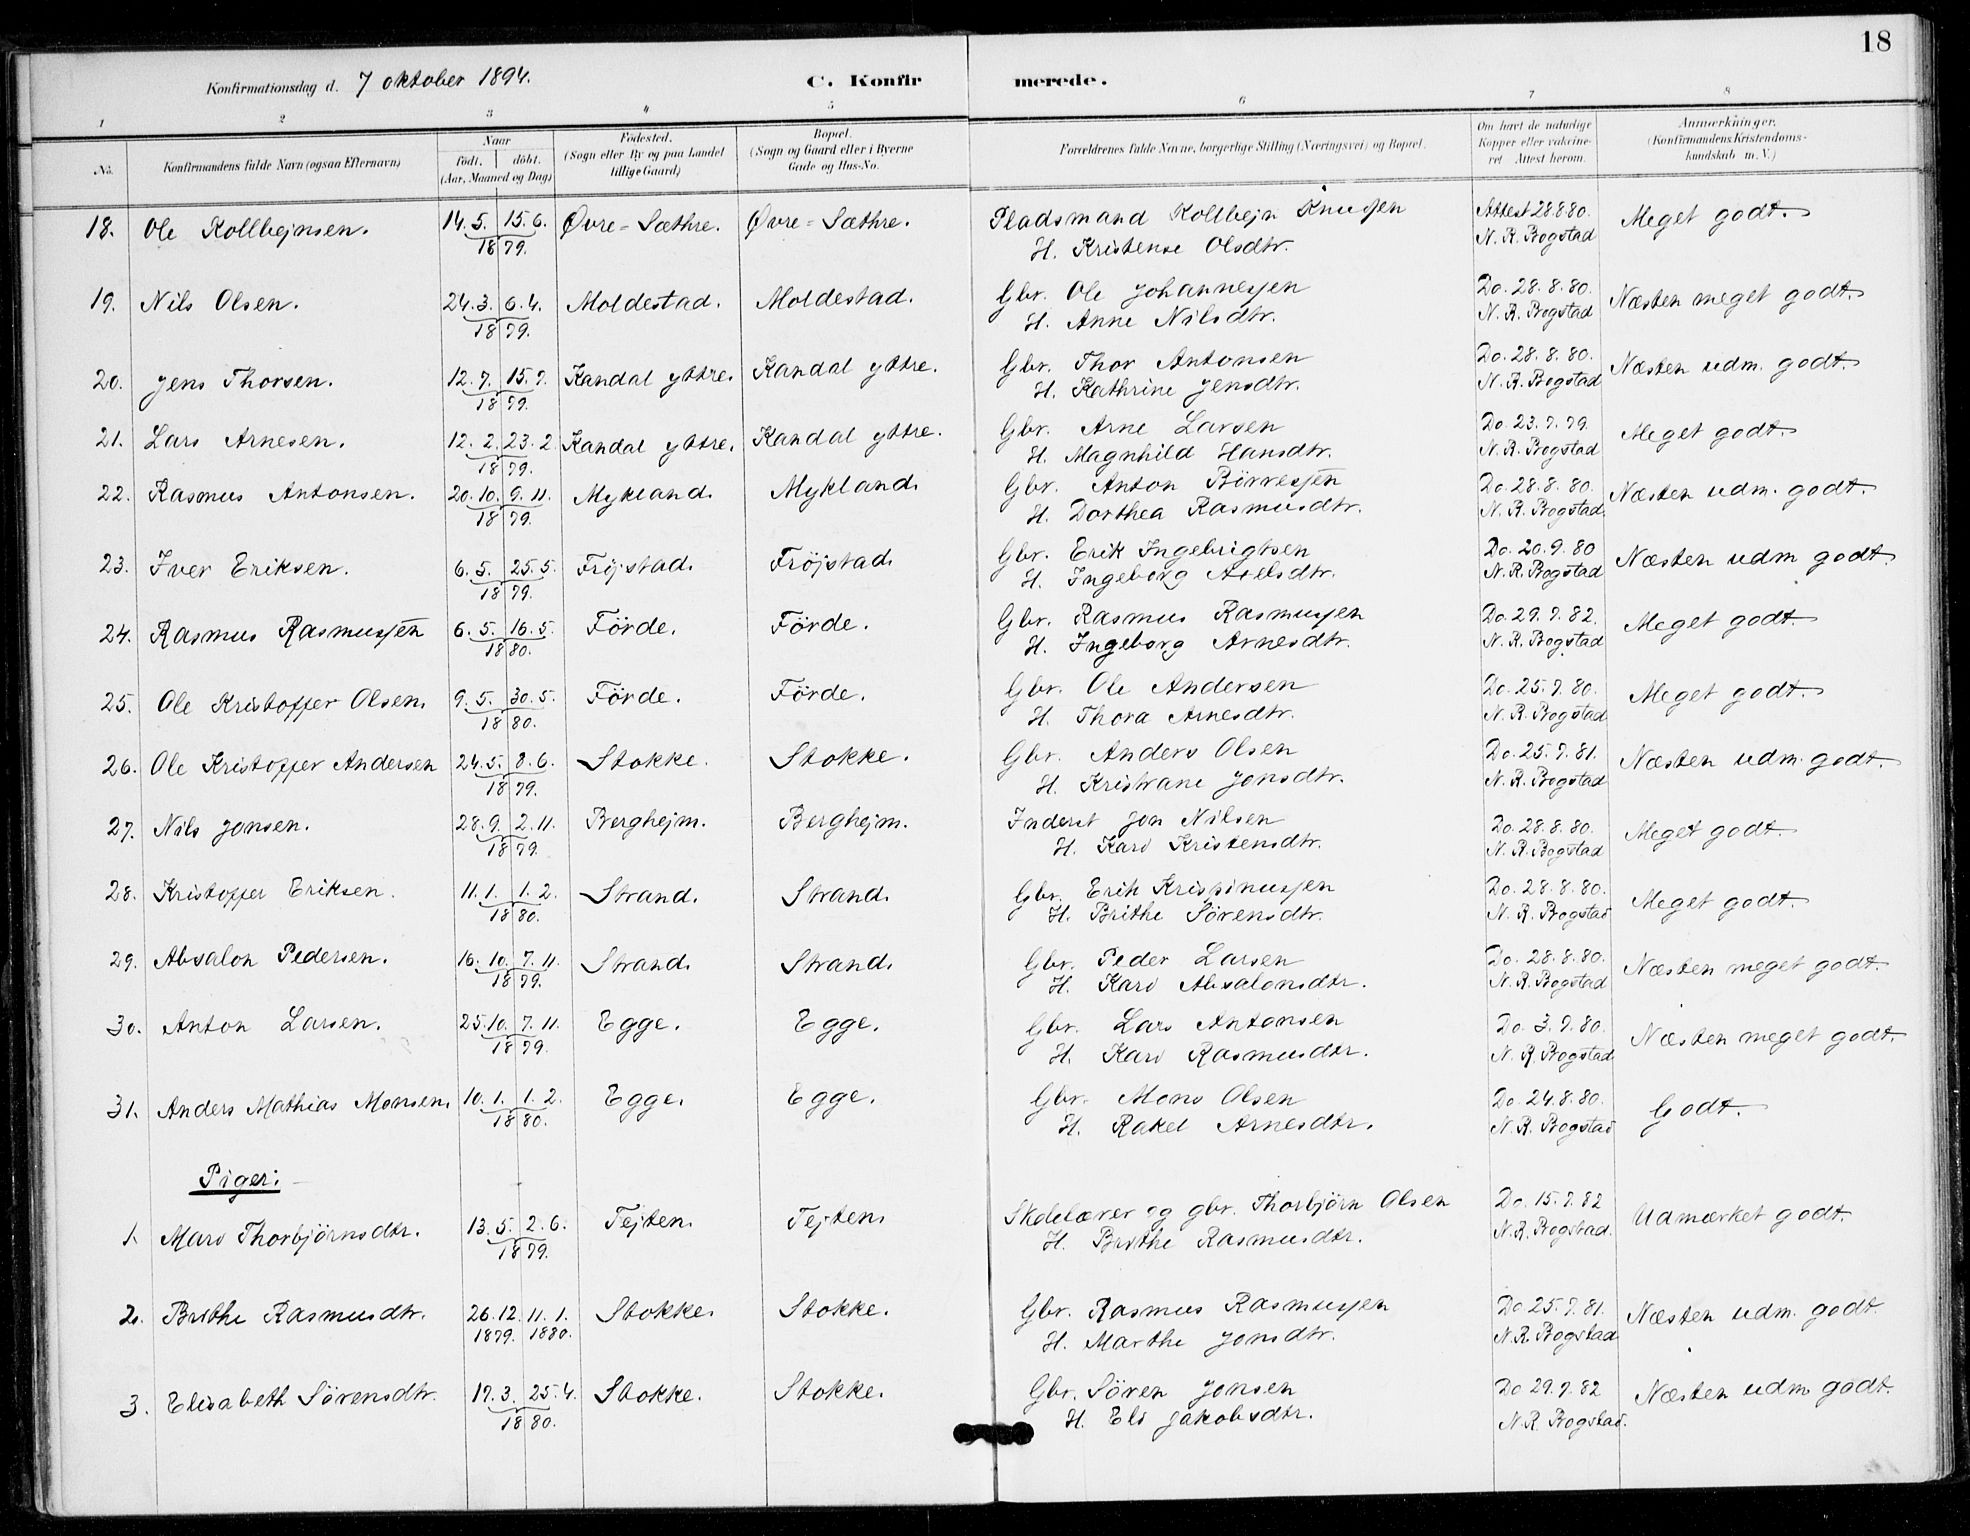 18
Konfirmationsdag d. 7 oktober 1894. C. Konfirmerede.
1 2 3 4 5 6 7 8
No. Konfirmandens fulde Navn (ogsaa Efternavn) Naar født. døbt. (Aar, Maaned og Dag) Fødested. (Sogn eller By og paa Landet tillige Gaard) Bopæl. (Sogn og Gaard eller i Byerne Gade og Hus-No. Forældrenes fulde Navne, borgerlige Stilling (Næringsvei) og Bopæl. Om havt de naturlige Kopper eller vakcineret Attest herom. Anmærkninger. (Konfirmandens Kristendomskundskab m. V.)
18. Ole Kollbejnsen. 14.5. 15.6. Øvre-Sæthre. Øvre-Sæthre. Pladsmand Kollbejn Knusen Attest 28.8.80. Meget godt.
1879. H. Kristense Olsdtr. N. R. Bogstad
19. Nils Olsen. 24.3. 6.4. Moldestad. Moldestad. Gbr. Ole Johannesen Do. 28.8.80. Næsten meget godt.
1879. H. Anne Nilsdtr. N. R. Bogstad
20. Jens Thorsen. 12.7. 15.7. Kandal yttre. Kandal yttre. Gbr. Thor Antonsen Do. 28.8.80. Næsten udm. godt.
1879. H. Kathrine Jensdtr. N. R. Bogstad
21. Lars Arnesen. 12.2. 23.2 Kandal yttre. Kandal yttre. Gbr. Arne Larsen Do. 23.7.79. Meget godt.
1879. H. Magnhild Hansdtr. N. R. Bogstad
22. Rasmus Antonsen. 20.10. 9.11. Mykland. Mykland. Gbr. Anton Börresen Do. 28.8.80. Næsten udm. godt.
1879. H. Dorthea Rasmusdtr. N. R. Bogstad.
23. Iver Eriksen. 6.5. 25.5. Fröjstad. Fröjstad. Gbr. Erik Ingebrigtsen Do. 20.9.80 Næsten udm godt.
1879. H. Ingeborg Axelsdtr. N. R. Bogstad
24. Rasmus Rasmussen 6.5. 16.5. Förde. Förde. Gbr. Rasmus Rasmussen Do. 29.7.82. Meget godt.
1880. H. Ingeborg Arnesdtr. N. R. Bogstad
25. Ole Kristoffer Olsen. 9.5. 30.5. Förde. Förde. Gbr. Ole Andersen Do. 25.7.80. Meget godt.
1880. H. Thora Arnesdtr. N. R. Bogstad
26. Ole Kristoffer Andersen 24.5. 8.6. Stokke. Stokke. Gbr. Anders Olsen Do. 25.7.81. Næsten udm. godt.
1879. H. Kristiane Jonsdtr. N. R. Bogstad
27. Nils Jonsen. 28.9. 2.11. Berghejm. Berghejm. Inderst Jon Nilsen Do. 28.8.80. Meget godt.
1879. H. Kari Kristensdtr. N. R. Bogstad
28. Kristoffer Eriksen. 11.1. 1.2. Strand. Strand. Gbr. Erik Kristinusen Do. 28.8.80. Meget godt.
1880. H. Brithe Sörensdtr. N. R. Bogstad
29. Absalon Pedersen. 16.10. 7.11. Strand. Strand. Gbr. Peder Larsen Do. 28.8.80. Næsten meget godt.
1879. H. Kari Absalonsdtr. N. R. Bogstad
30. Anton Larsen. 25.10. 7.11. Egge. Egge. Gbr. Lars Antonsen Do. 3.7.80. Næsten meget godt.
1879. H. Kari Rasmusdtr. N. R. Bogstad
31. Anders Mathias Monsen. 10.1. 1.2. Egge. Egge. Gbr. Mons Olsen Do. 24.8.80. Godt.
1880. H. Rakel Arnesdtr. N. R. Bogstad
Piger:
1. Mari Thorbjörnsdtr. 13.5. 2.6. Tejten. Tejten. Skolelærer og gbr. Thorbjörn Olsen Do. 15.7.82 Udmærket godt.
1879. H. Brithe Rasmusdtr. N. R. Bogstad.
2. Brithe Rasmusdtr. 26.12. 11.1. Stokke. Stokke. Gbr. Rasmus Rasmussen Do. 25.7.81. Næsten udm. godt.
1879. 1880. H. Marthe Jonsdtr. N. R. Bogstad
3. Elisabeth Sörensdtr. 17.3. 25.4. Stokke. Stokke. Gbr. Sören Jonsen Do 29.7.82 Næsten udm godt.
1880. H. Eli Jakobsdtr. N. R. Bogstad.